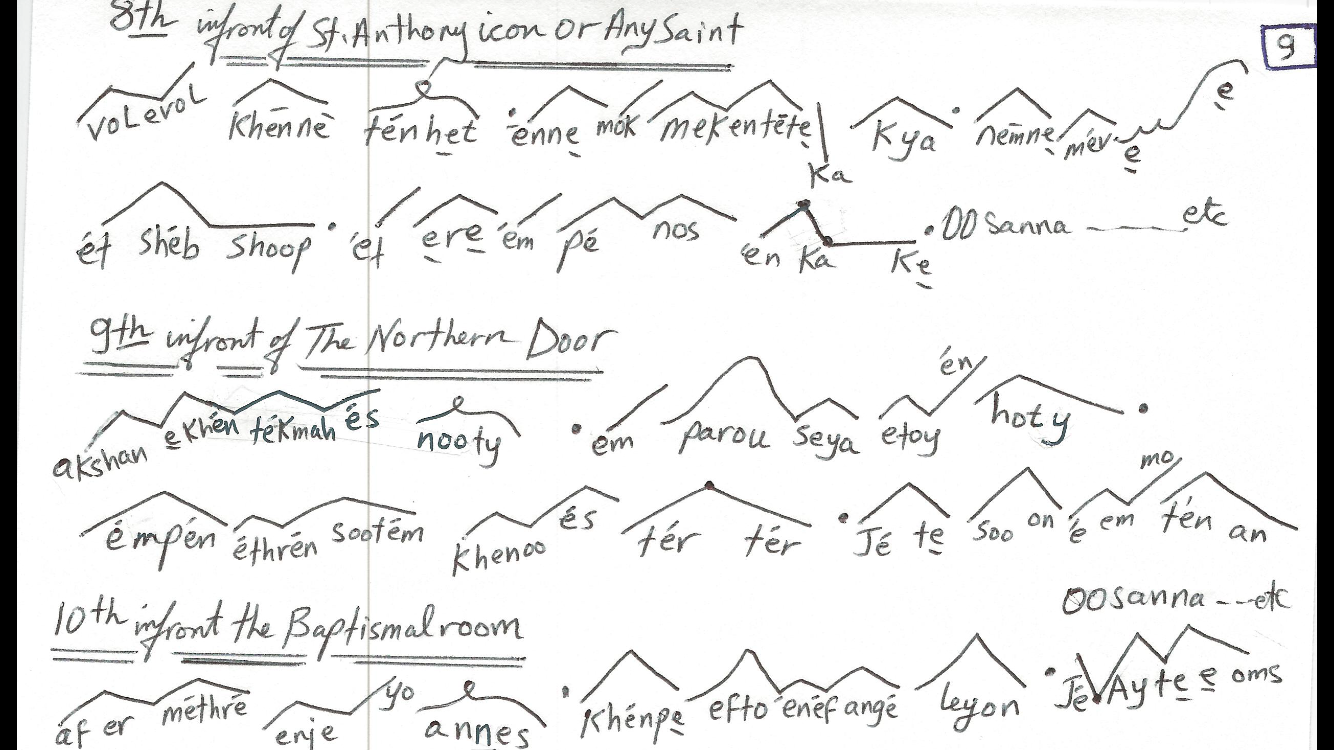 8th infront of St. Anthony icon or Any Saint
9
voLevoL Khēnnē ténhet énne mók mekentēte Ka Kya nēmne mév e e
ét shéb shoop ét ere ém pé nos én Ka Ke OOsanna ------ etc
9th infront of The Northern Door
akshan e Khén tékmah és nooty em parou seya etoy én hoty
émpén éthrén sootém Khenoo és tér tér Jé te soo on é em mo tén an
OOsanna ---etc
10th infront the Baptismal room
af er méthré enje yo annes Khénpe efto énéf angé leyon Jé Ay te e oms